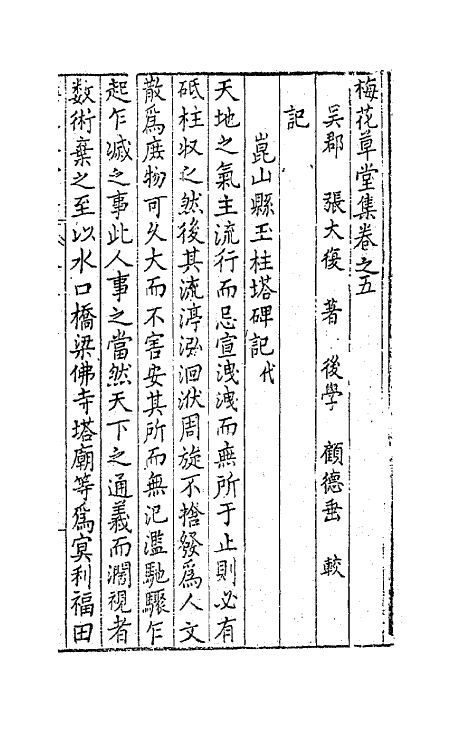 梅花草堂集卷之五
吳郡 張大復 著 後學 顧德垂 較
記
崑山縣玉柱塔碑記代
天地之氣主流行而忌宣洩洩而無所于止則必有
砥柱収之然後其流渟泓洄洑周旋不捨發爲人文
散爲庶物可久大而不害安其所而無氾濫馳驟乍
起乍滅之事此人事之當然天下之通義而濶視者
数術棄之至以水口橋梁佛寺塔廟等爲㝠利福田